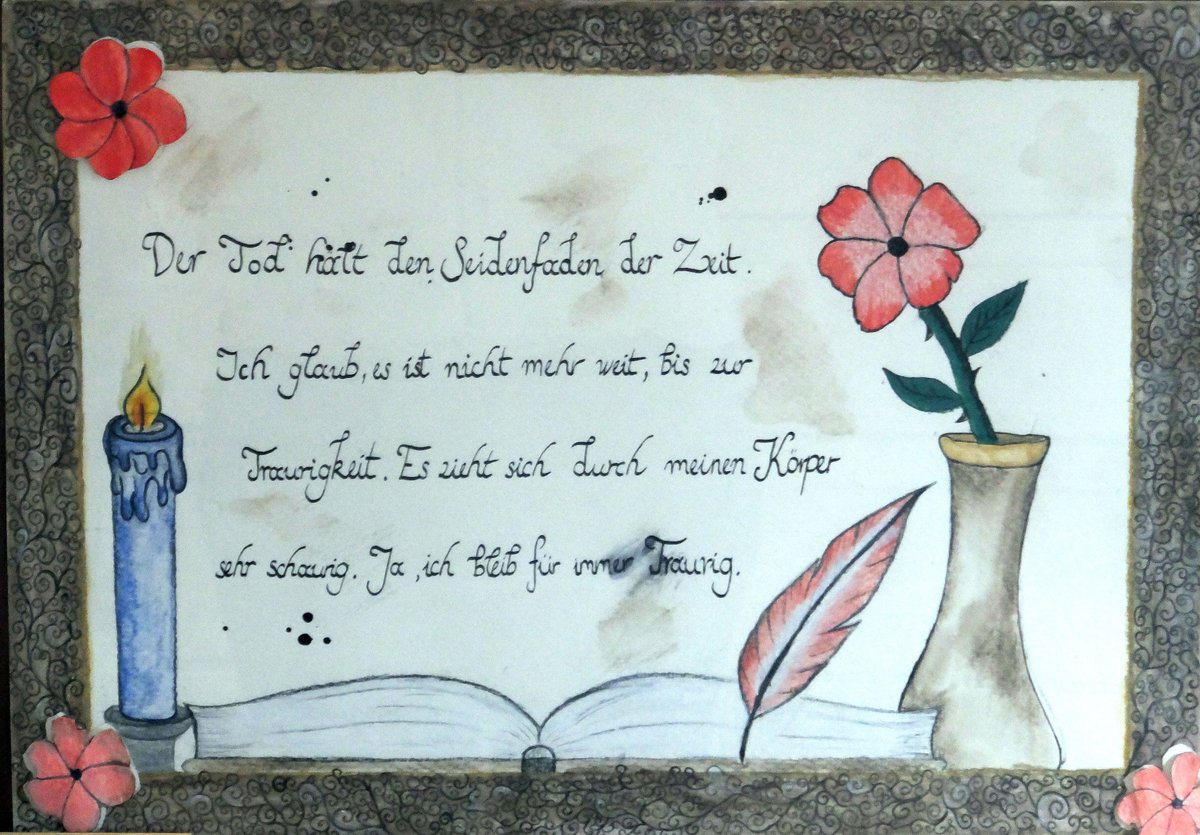 Der Tod hält den Seidenfaden der Zeit.
Ich glaub, es ist nicht mehr weit, bis zur
Traurigkeit. Es zieht sich durch meinen Körper
sehr schaurig. Ja, ich bleib für immer Traurig.